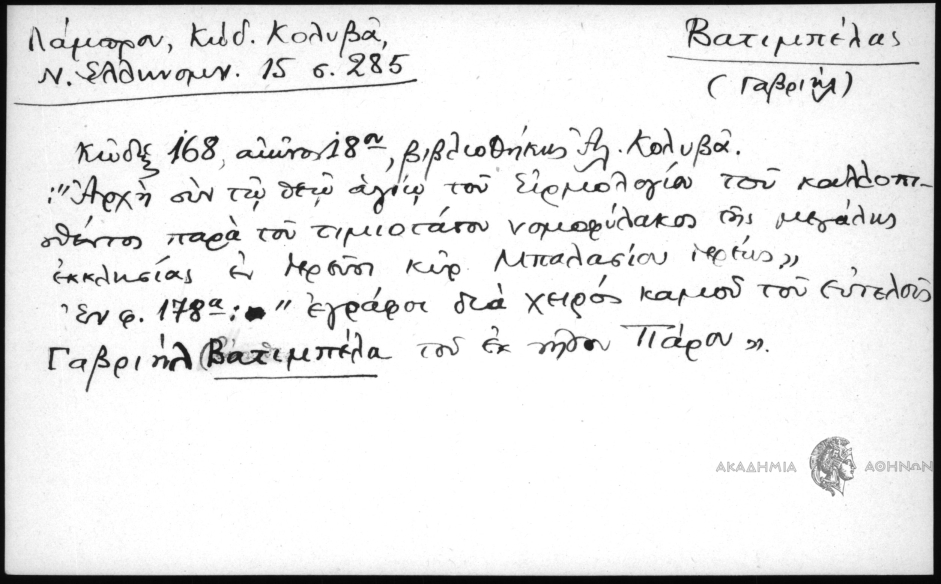 Λάμπρου, Κώδ. Κολυβᾶ,
Ν. Ἑλληνομν. 15 σ. 285
Βατιμπέλας
(Γαβριήλ)
Κῶδιξ 168, αἰῶνος 18ου, βιβλιοθήκης Ἀλ. Κολυβᾶ.
:"Ἀρχὴ σὺν τῷ θεῷ ἁγίῳ τοῦ Εἱρμολογίου τοῦ καλλοπι-
σθέντος παρὰ τοῦ τιμιοτάτου νομοφύλακος τῆς μεγάλης
ἐκκλησίας ἐν ἱερεῦσι κὺρ Μπαλασίου ἱερέως»
Ἐν φ. 178α: "ἐγράφοι διὰ χειρός καμοῦ τοῦ εὐτελοῦς
Γαβριήλ Βατιμπέλα τοῦ ἐκ νήσου Πάρου».
ΑΚΑΔΗΜΙΑ ΑΘΗΝΩΝ